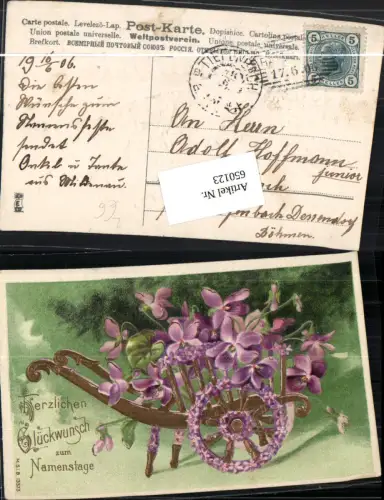 Carte postale. Levelező-Lap. Post-Karte. Dopisnice. Cartolina postale
Union postale universelle. Weltpostverein. Unione postale
Brefkort. ВСЕМІРНЫЙ ПОЧТОВЫЙ СОЮЗЪ. РОССІЯ.
5 5
17.6.06
19 16/6 06.
Die besten
Wünsche zum
Namensfeste
sendet
Onkel u Tante
aus Wildenau.
An Herrn
Adolf Hoffmann
junior
Artikel Nr.
650123
Dessendorf
Böhmen.
Herzlichen
Glückwunsch
zum
Namenstage